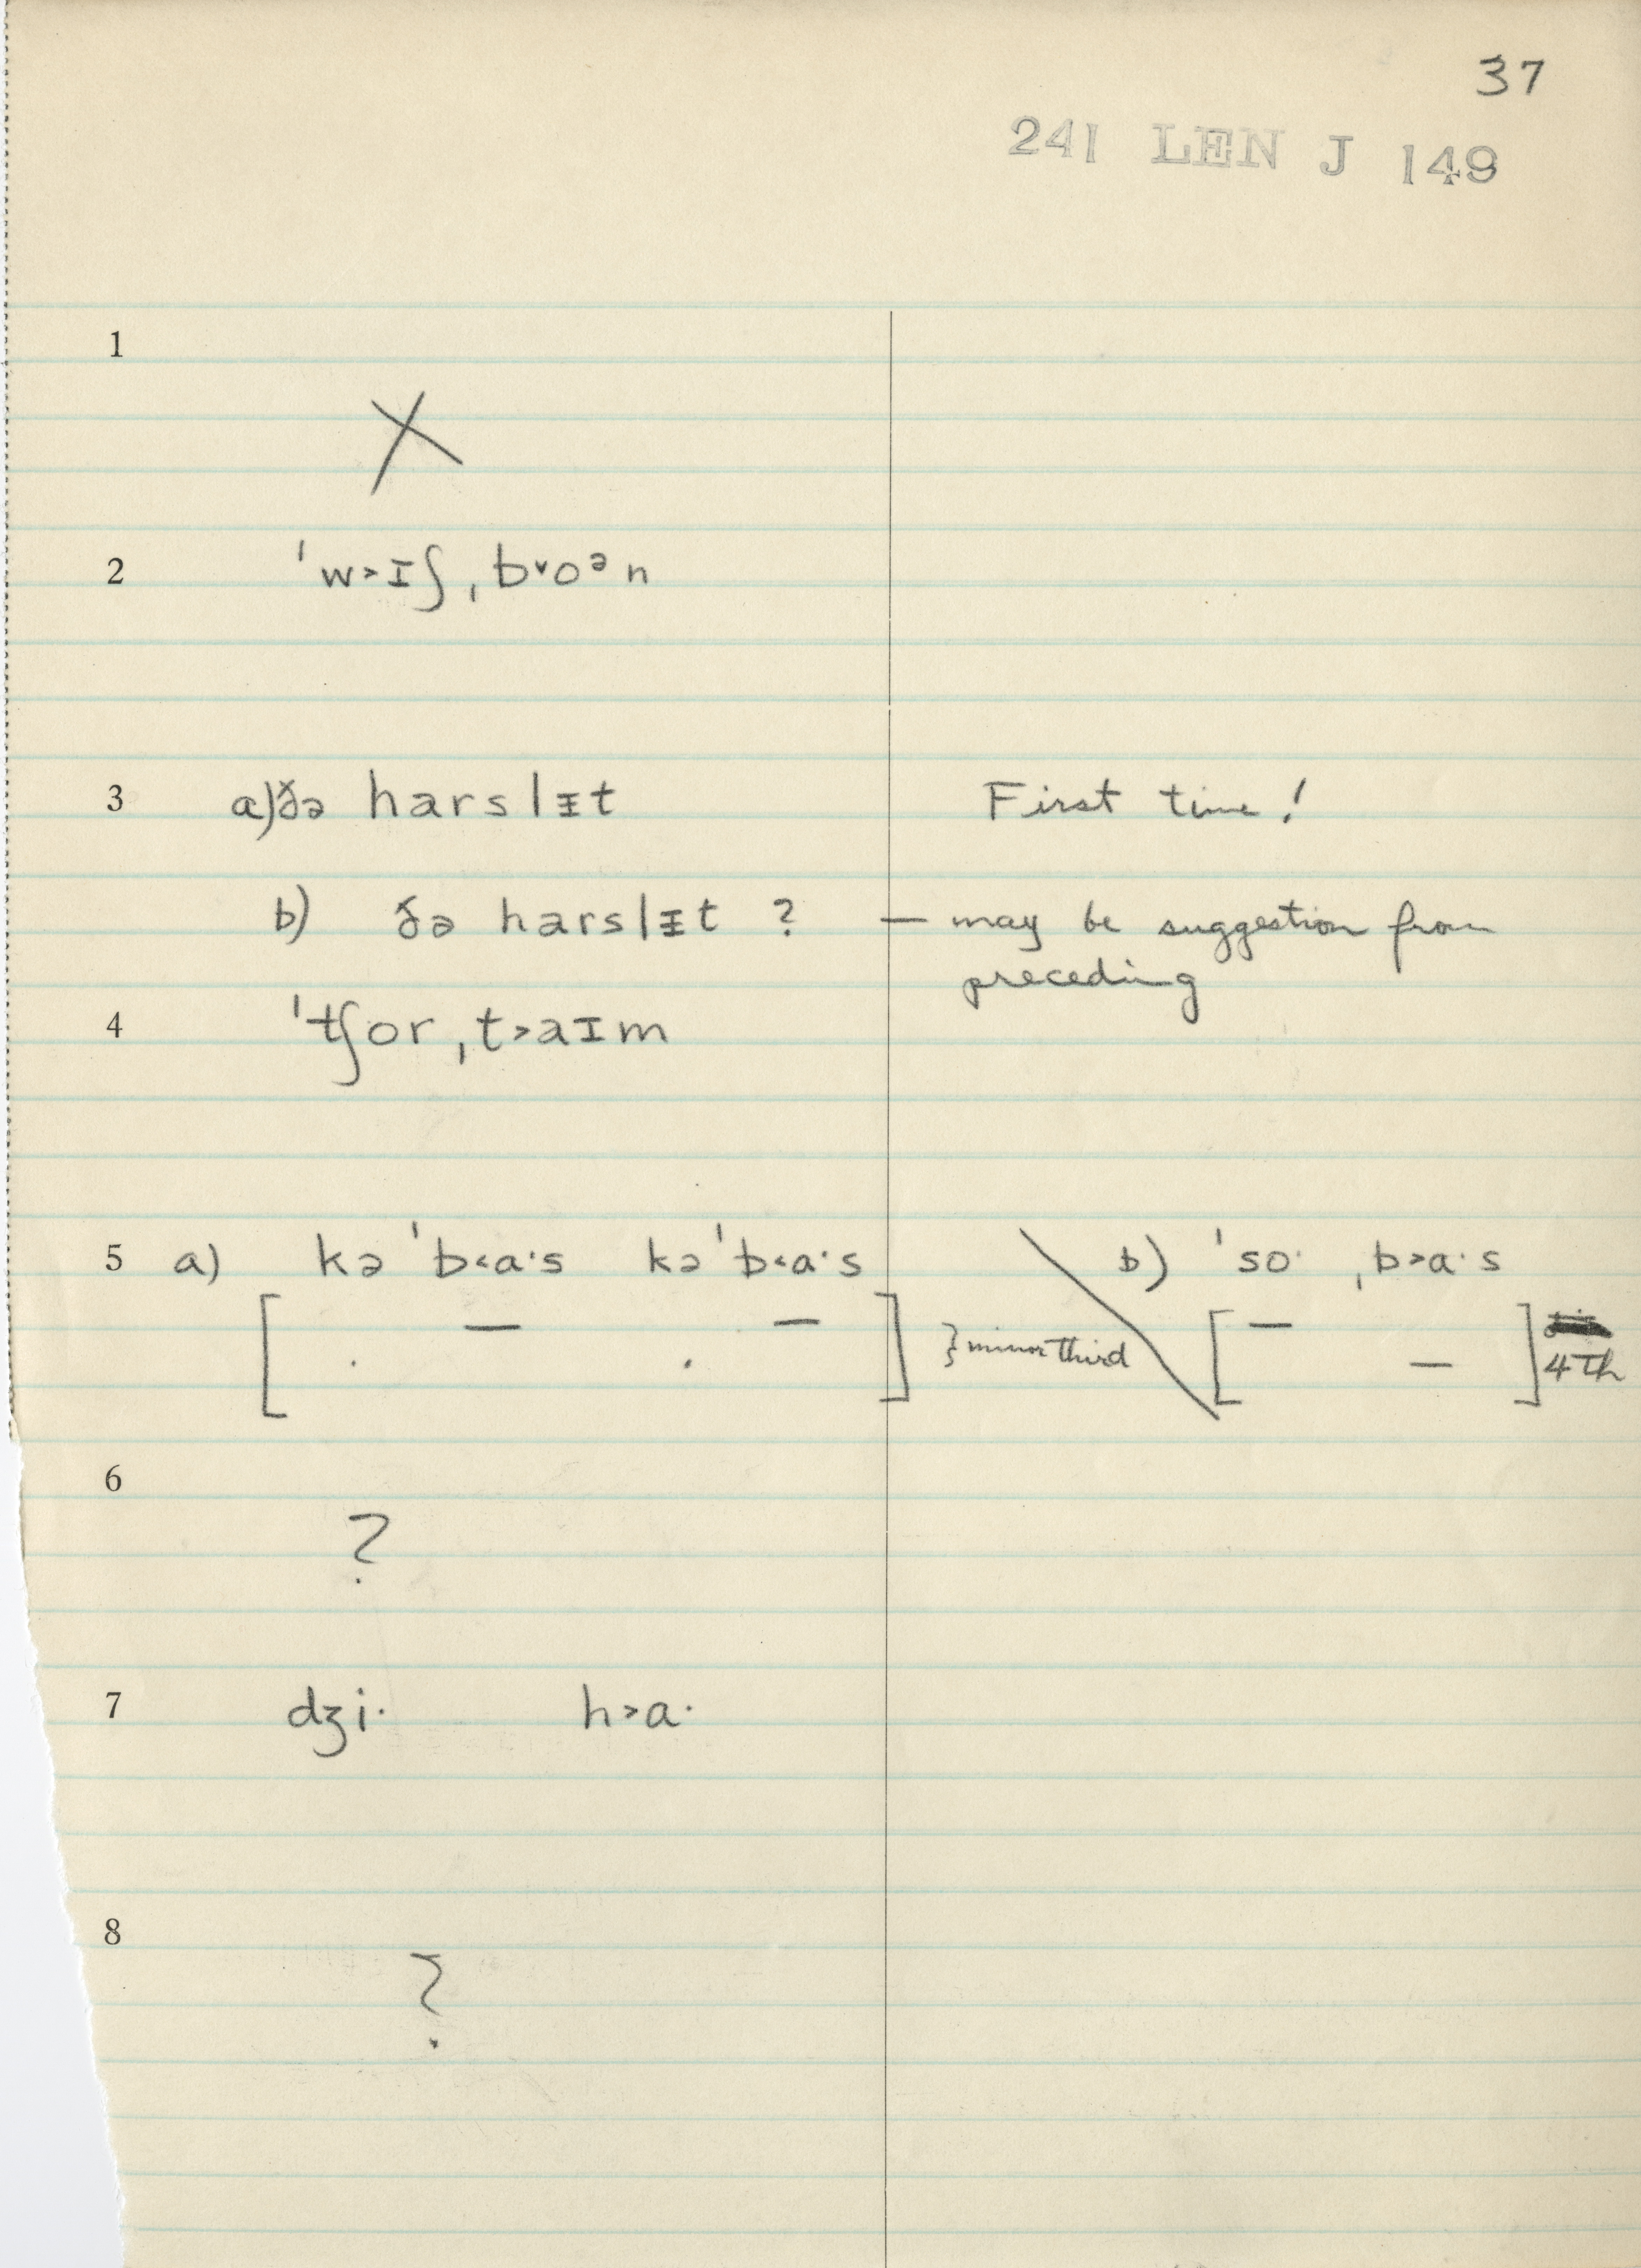 37
241 LEN J 149
1
X
2 ˈw˃ɪʃˌb˅oᵊn
3 a) ðə harslᵻt First time!
b) ðə harslᵻt ? — may be suggestion from
preceding
4 ˈtʃorˌt˃aɪm
5 a) kəˈb˂aˑs kəˈb˂aˑs b) ˈsoˑ ˌb˃aˑs
[ . — . — ] } minor third [ — — ] 4th
6
?
7 dʒiˑ h˃aˑ
8
?